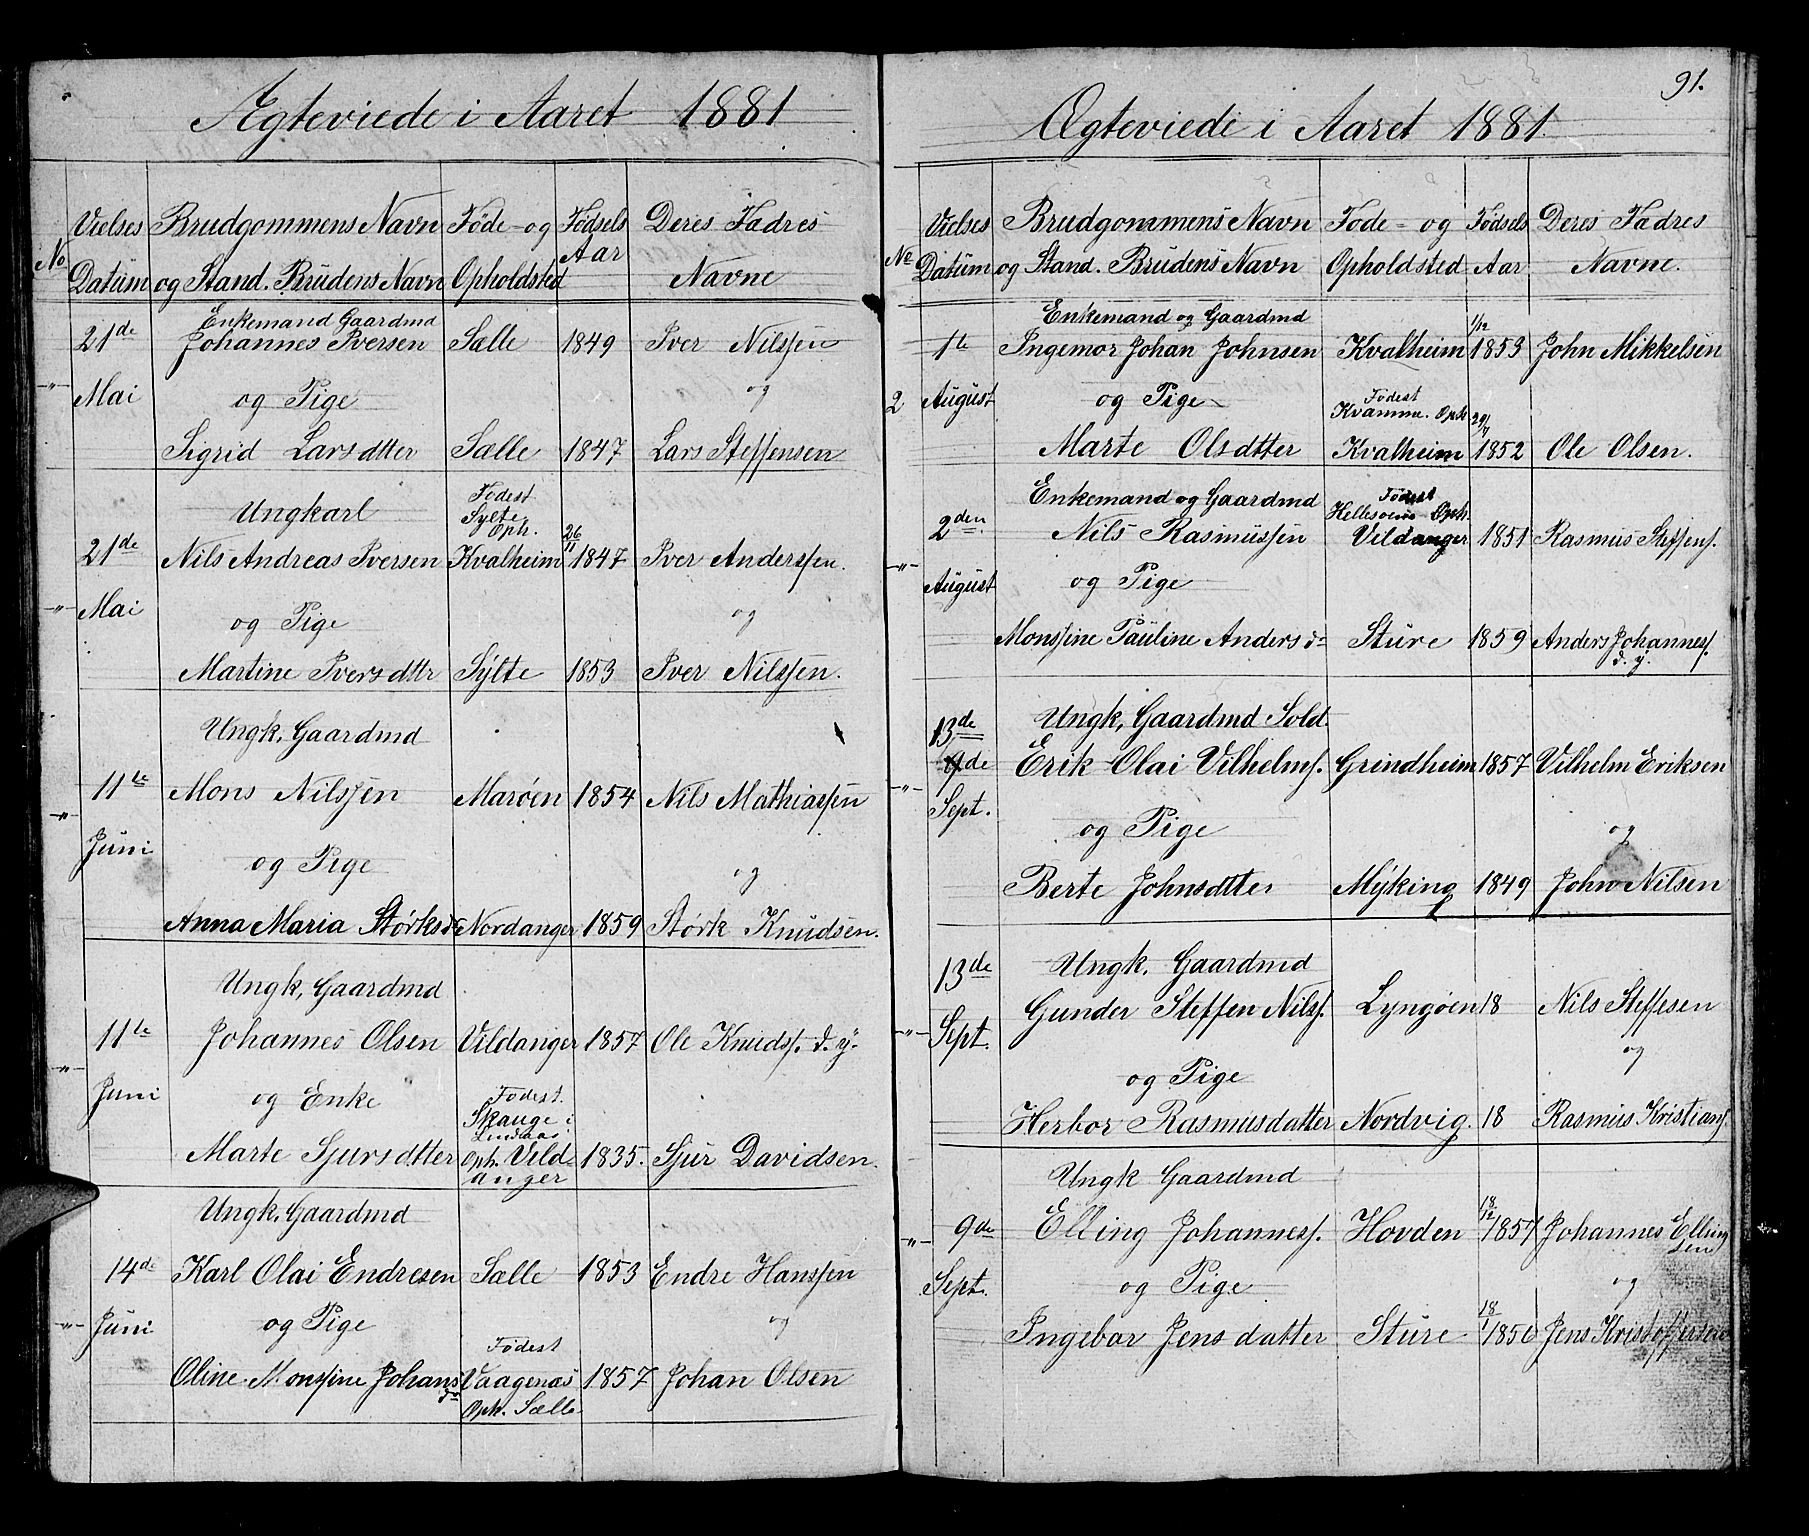 Ægteviede i Aaret 1881
No
Vielses Datum
Brudgommens Navn og Stand. Brudens Navn
Føde- og Opholdsted
Fødsels Aar
Deres Fadres Navne
Enkemand Gaardmd
21de Johannes Iversen Sælle 1849 Iver Nilssen
-"- Mai og Pige og
Sigrid Larsdtter Sælle 1847 Lars Steffensen
Ungkarl Fødest Sylte Oph.
21de Nils Andreas Iversen Kvalheim 26/11 1847 Iver Anderssen.
-"- Mai og Pige og
Martine Iversdttr Sylte 1853 Iver Nilssen.
Ungk, Gaardmd
11te Mons Nilssen Marøen 1854 Nils Mathiassen
-"- Juni og Pige og
Anna Maria Størksd Nordanger 1859 Størk Knudsen.
Ungk, Gaardmd
11te Johannes Olsen Vildanger 1857 Ole Knuds. d. y.
-"- Juni og Enke Fødest. Skauge i Lindaas
Marte Sjursdtter Oph. Vildanger 1835. Sjur Davidsen.
Ungk, Gaardmd
14de Karl Olai Endresen Sælle 1853 Endre Hanssen
-"- Juni og Pige og
Fødest
Oline Monssine Johansdr Vaagenæs 1857 Johan Olsen
Oph. Sælle
91.
Ægteviede i Aaret 1881.
No
Vielses Datum
Brudgommens Navn og Stand. Brudens Navn
Føde- og Opholdsted
Fødsels Aar
Deres Fadres Navne.
Enkemand og Gaardmd
1te Ingemor Johan Johnsen Kvalheim 1/12 1853 John Mikkelsen
2 August og Pige Fødest Kvamme. Oph.
Marte Olsdtter Kvalheim 29/7 1852 Ole Olsen.
Enkemand og Gaardmd Fødest Hellesøens Oph.
2den Nils Rasmussen Vildanger 1851 Rasmus Steffens.
-"- August og Pige
Monssine Pauline Andersdr Sture 1859 Anders Johannes. d. y.
13de Ungk, Gaardmd Sold
9de Erik Olai Vilhelms. Grindheim 1857 Vilhelm Eriksen
-"- Sept. og Pige og
Berte Johnsdtter Myking 1849 John Nilsen
13de Ungk. Gaardmd
Gunder Steffen Nilss. Lyngøen 18 Nils Steffesen
-"- Sept. og
og Pige
Herbor Rasmusdatter Nordvig. 18 Rasmus Kristians.
Ungk Gaardmd
-"- 9de Elling Johannes. Hovden 18/12 1857 Johannes Ellingsen
Sept. og Pige og
Ingebor Jensdatter Sture 18/1 1856 Jens Kristoffersen